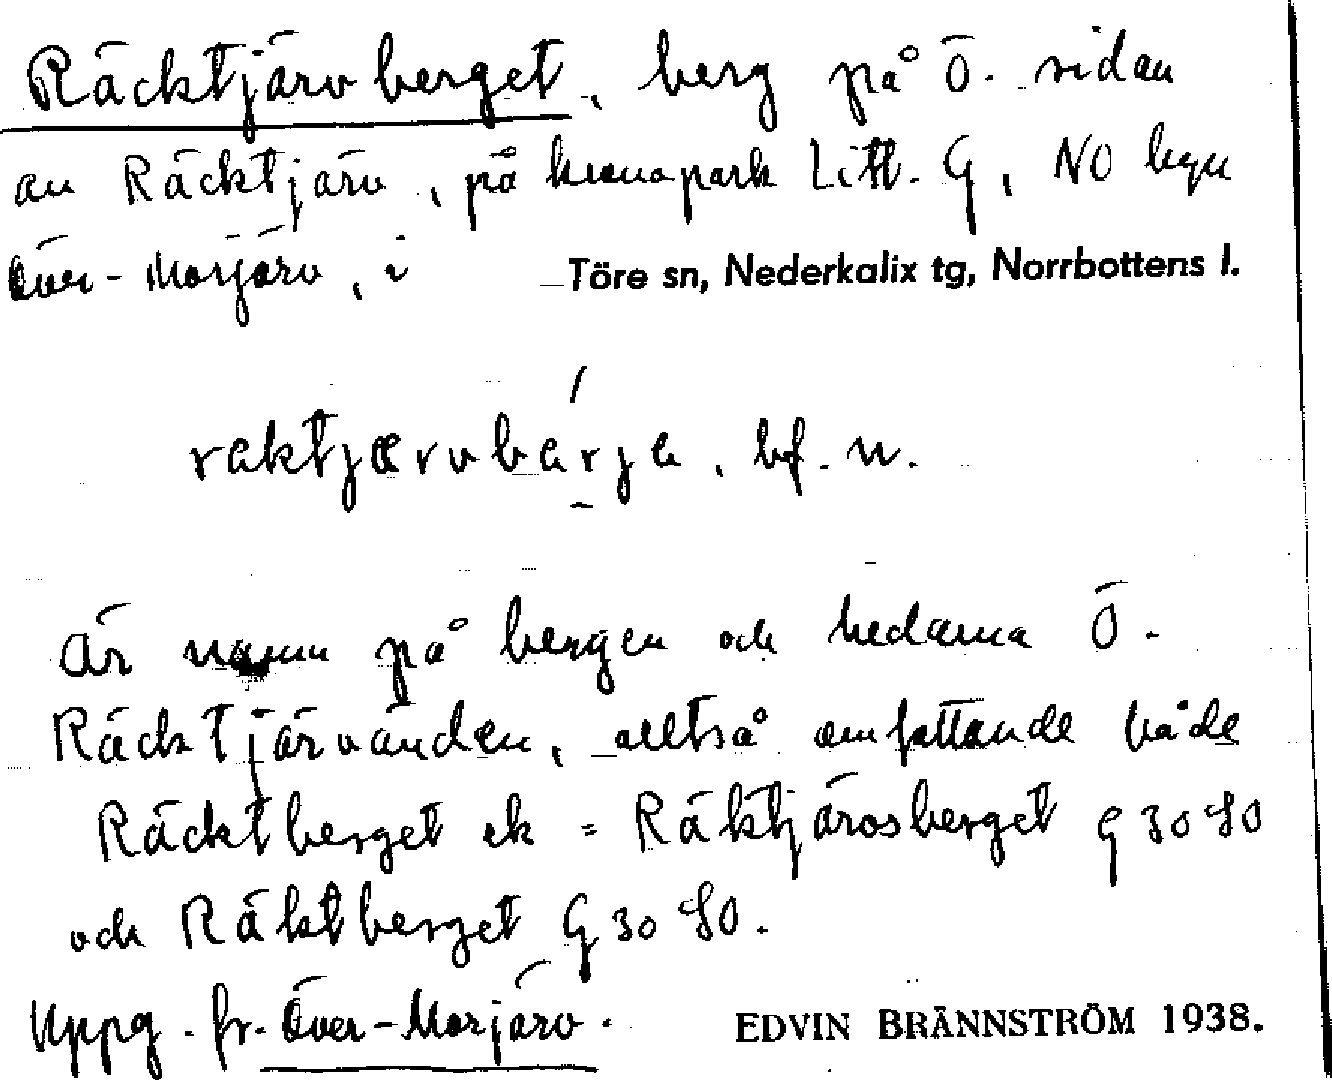 Räcktjärvberget, berg på Ö. sidan
av Räcktjärv, på kronopark Litt. G, NO byn
Över-Morjärv, i Töre sn, Nederkalix tg, Norrbottens l.
raktjærvbárja, bf. n.
Är namn på bergen och hedarna Ö.
Räcktjärvänden, alltså omfattande både
Räcktberget ek = Räktjärosberget G 30 SO
och Räktberget G 30 SO.
Uppg. fr. Över-Morjärv.
EDVIN BRÄNNSTRÖM 1938.